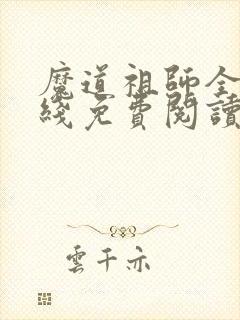 魔道祖師全
綫免費閱讀
雲千亦